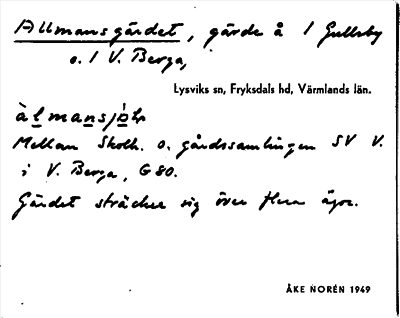 Allmansgärdet, gärde å 1 Gullsby
o. 1 V. Berga,
Lysviks sn, Fryksdals hd, Värmlands län.
Mellan Skolh. o. gårdssamlingen SV V.
i V. Berga, G80.
Gärdet sträcker sig över flera ägor.
ÅKE NORÉN 1949